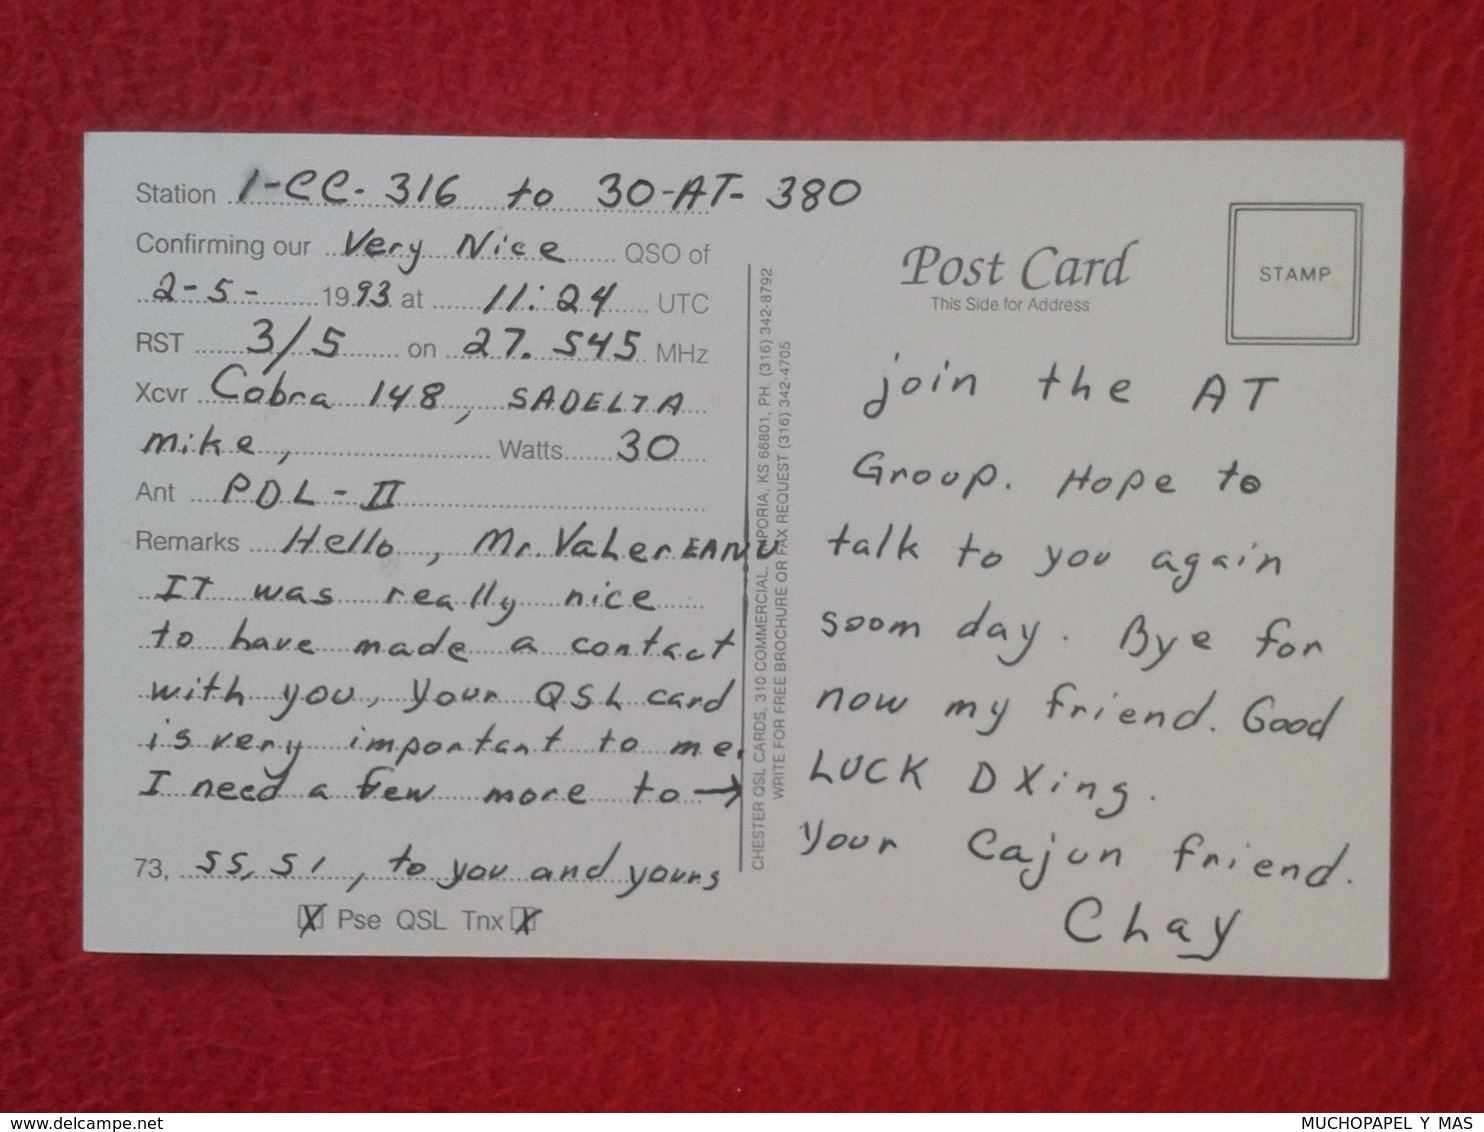 Station 1-CC-316 to 30-AT-380
Confirming our Very Nice QSO of
2-5- 1993 at 11:24 UTC
RST 3/5 on 27.545 MHz
Xcvr Cobra 148, SADELTA
mike, Watts 30
Ant PDL-II
Remarks Hello, Mr. ValerEANU
IT was really nice
to have made a contact
with you, Your QSL card
is very important to me.
I need a few more to →
73, 55, 51, to you and yours
X Pse QSL Tnx X
CHESTER QSL CARDS, 310 COMMERCIAL, EMPORIA, KS 66801, PH. (316) 342-8792
WRITE FOR FREE BROCHURE OR FAX REQUEST (316) 342-4705
Post Card
This Side for Address
STAMP
join the AT
Group. Hope to
talk to you again
soom day. Bye for
now my friend. Good
LUCK DXing.
Your Cajun friend.
Chay
delcampe.net
MUCHOPAPEL Y MAS